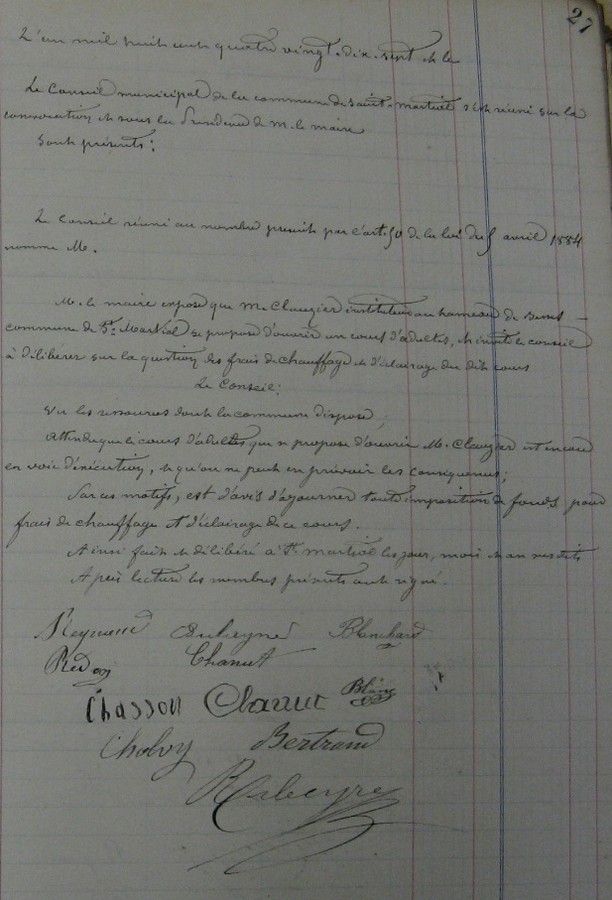 27
L'an mil huit cent quatre vingt-dix-sept et le
Le Conseil municipal de la commune de Saint-Martial s'est réuni sur la
convocation et sous la Présidence de M. le maire
Sont présents:
Le Conseil réuni au nombre prescrit par l'art. 50 de la loi du 5 avril 1884
nomme M.
M. le maire expose que M. Clauzier instituteur au hameau de
commune de St. Martial se propose d'ouvrir un cours d'adultes, et invite le conseil
à délibérer sur la question des frais de chauffage et d'éclairage du dit cours
Le Conseil:
Vu les ressources dont la commune dispose;
Attendu que le cours d'adultes que se propose d'ouvrir M. Clauzier est encore
en voie d'exécution, et qu'on ne peut en prévoir les conséquences;
Par ces motifs, est d'avis d'ajourner toute imposition de fonds pour
frais de chauffage et d'éclairage de ce cours.
Ainsi fait et délibéré à St. Martial les jour, mois et an susdits
Après lecture les membres présents ont signé.
Reymond Aubeyne Blanchard
Redon Chanut
Chasson Clauzet Blanc
Cholvy Bertrand
Rabeyre